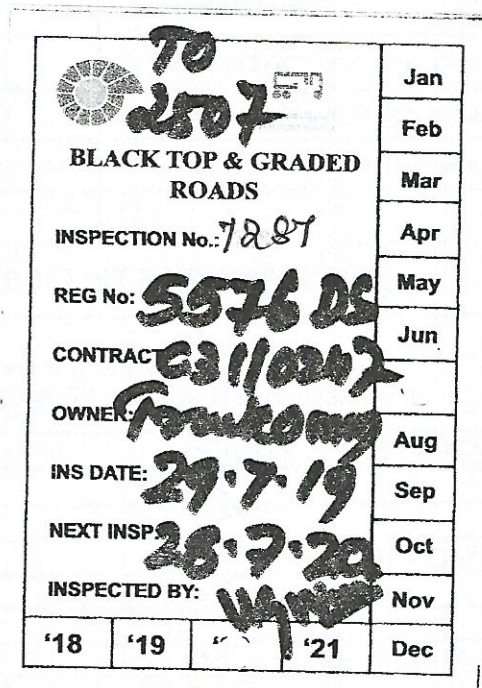 TO
2507
BLACK TOP & GRADED
ROADS
INSPECTION No.: 7287
REG No: 5576 DS
CONTRACT C31110247
OWNER:
INS DATE: 29.7.19
NEXT INSP: 28.7.20
INSPECTED BY:
'18 '19 '21
Jan
Feb
Mar
Apr
May
Jun
Aug
Sep
Oct
Nov
Dec